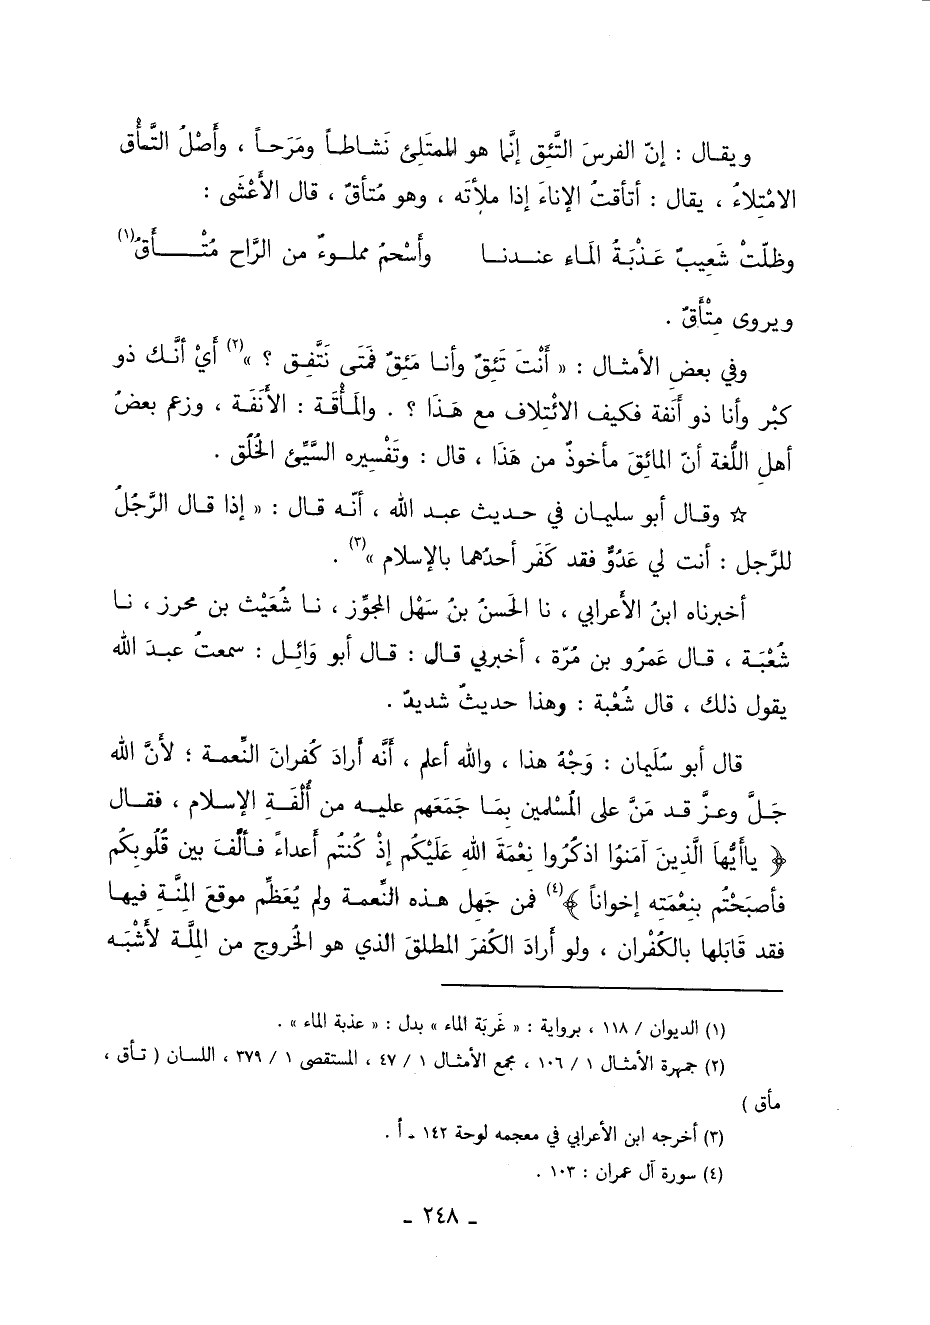 ويقال : إنّ الفرسَ التَّئِق إنَّما هو الممتَلِئ نَشاطاً ومَرَحاً ، وأَصْلُ التَّأْق
الامْتِلاءُ ، يقال : أتأقتُ الإناءَ إذا ملأتَه ، وهو مُتأقٌ ، قال الأَعْشَى :
وظلّتْ شَعِيبٌ عَذْبَةُ الماءِ عندنا    وأَسْحمُ مملوءٌ من الرَّاح مُتْأَقُ(١)
ويروى مِتْأَقٌ .
وفي بعض الأمثال : « أَنْتَ تَئِقٌ وأنا مَئِقٌ فَمَتَى نَتَّفِق ؟ »(٢) أَيْ أنَّك ذو
كِبْر وأنا ذو أَنَفة فكيف الائْتِلاف مع هَذَا ؟ . والمَأْقَة : الأَنَفَة ، وزعم بعضُ
أهلِ اللُّغة أنّ المائِقَ مأخوذٌ من هَذَا ، قال : وتَفْسِيره السَّيِّئ الخُلُق .
☆ وقال أبو سليمان في حديث عبد الله ، أنّه قال : « إذا قال الرَّجُلُ
للرَّجل : أنت لي عَدُوٌّ فقد كَفَر أحدُهما بالإسلام »(٣) .
أخبرناه ابنُ الأَعرابي ، نا الحَسنُ بنُ سَهْل المجوِّز ، نا شُعَيْث بن محرز ، نا
شُعْبَة ، قال عَمرُو بن مُرّة ، أخبرني قال : قال أبو وَائِل : سمعتُ عبدَ الله
يقول ذلك ، قال شُعْبة : وهذا حديثٌ شديدٌ .
قال أبو سُلَيمان : وَجْهُ هذا ، والله أعلم ، أَنَّه أَرادَ كُفرانَ النِّعمة ؛ لأنَّ الله
جَلَّ وعزَّ قد مَنَّ على المُسْلمين بِمَا جَمَعَهم عليه من أُلْفَةِ الإسلام ، فقال
﴿ ياأَيُّها الَّذينَ آمَنُوا اذكُروا نِعْمَةَ اللهِ عَلَيْكُم إِذْ كُنتُم أعداءً فألَّفَ بين قُلُوبِكُم
فأصبَحْتُم بِنِعْمَتِه إخواناً ﴾(٤) فمن جَهِل هذه النِّعمة ولم يُعَظِّم موقعَ المِنَّةِ فيها
فقد قَابَلها بالكُفْران ، ولو أَرادَ الكُفرَ المطلقَ الذي هو الخُروج من المِلَّة لأَشْبَه
(١) الديوان / ١١٨ ، برواية : « غَربَة الماء » بدل : « عذبة الماء » .
(٢) جمهرة الأمثال ١ / ١٠٦ ، مجمع الأمثال ١ / ٤٧ ، المستقصى ١ / ٣٧٩ ، اللسان ( تأق ،
مأق )
(٣) أخرجه ابن الأعرابي في معجمه لوحة ١٤٢ ـ أ .
(٤) سورة آل عمران : ١٠٣ .
ـ ٢٤٨ ـ